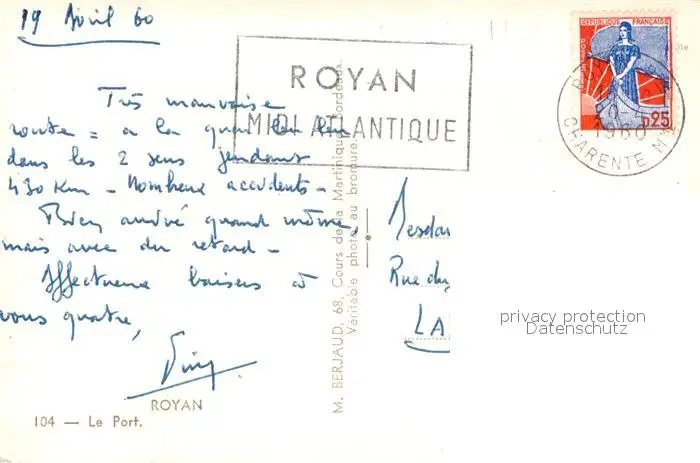 19 Avril 60
ROYAN
MIDI ATLANTIQUE
Très mauvaise
route = a la
dans les 2 sens pendant
430 Km - Nombreux accidents -
Bien arrivé quand même,
mais avec du retard -
Affectueux baisers à
vous quatre,
ROYAN
104 — Le Port.
M. BERJAUD, 68, Cours de la Martinique, Bordeaux.
Véritable photo au bromure.
REPUBLIQUE FRANÇAISE
0,25
1960
CHARENTE MME
Mesdam
Rue du
LA
privacy protection
Datenschutz